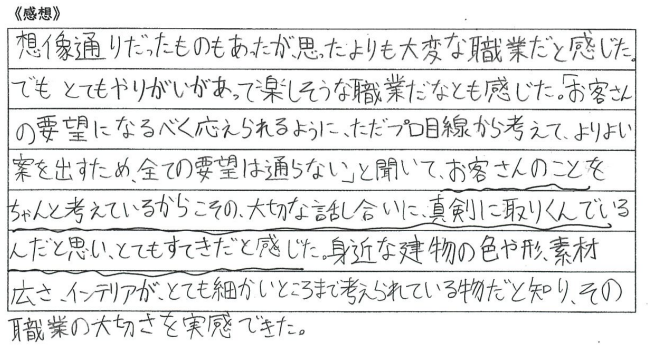 《感想》
想像通りだったものもあったが思ったよりも大変な職業だと感じた。
でもとてもやりがいがあって楽しそうな職業だなとも感じた。「お客さん
の要望になるべく応えられるように、ただプロ目線から考えて、よりよい
案を出すため、全ての要望は通らない」と聞いて、お客さんのことを
ちゃんと考えているからこその、大切な話し合いに、真剣に取りくんでいる
んだと思い、とてもすてきだと感じた。身近な建物の色や形、素材
広さ、インテリアが、とても細かいところまで考えられている物だと知り、その
職業の大切さを実感できた。